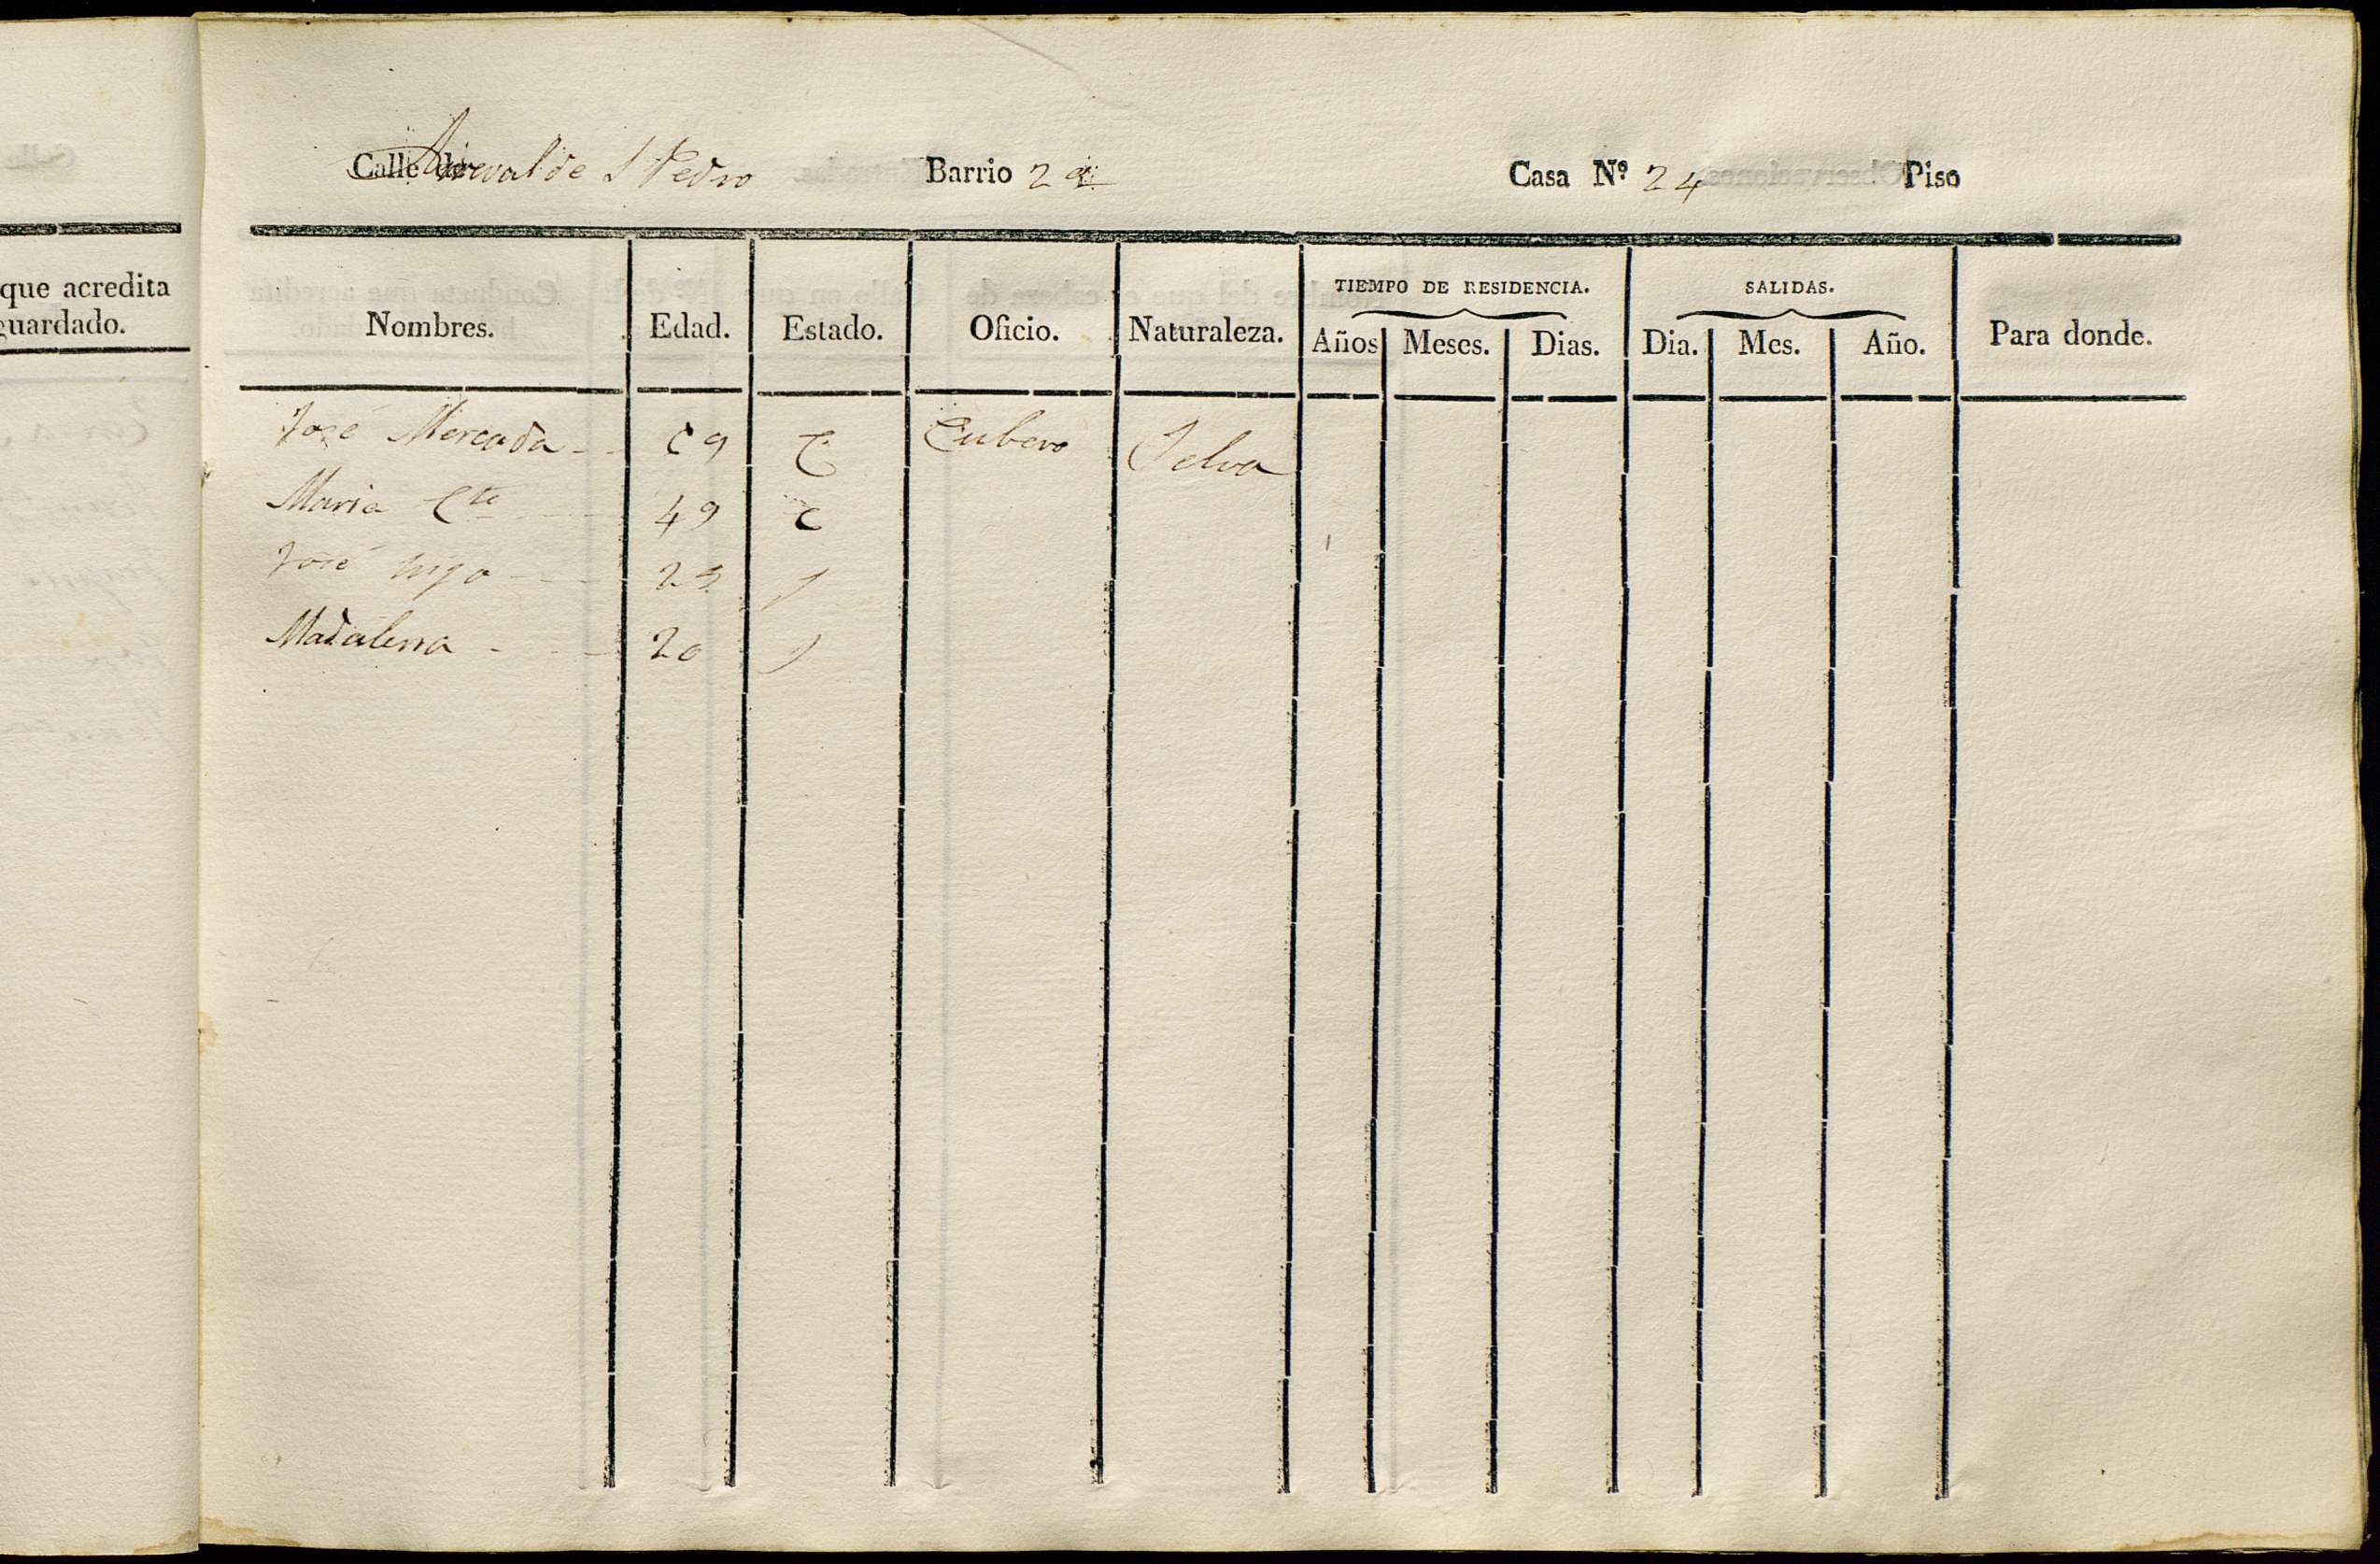 que acredita
guardado.
Calle de Arrevalde S Pedro Barrio 2º Casa Nº 24 Piso
TIEMPO DE RESIDENCIA. SALIDAS.
Nombres. Edad. Estado. Oficio. Naturaleza. Años Meses. Dias. Dia. Mes. Año. Para donde.
José Mercada C Cubero Selva
Maria Cte 49 C
José hijo 23 S
Madalena 20 S